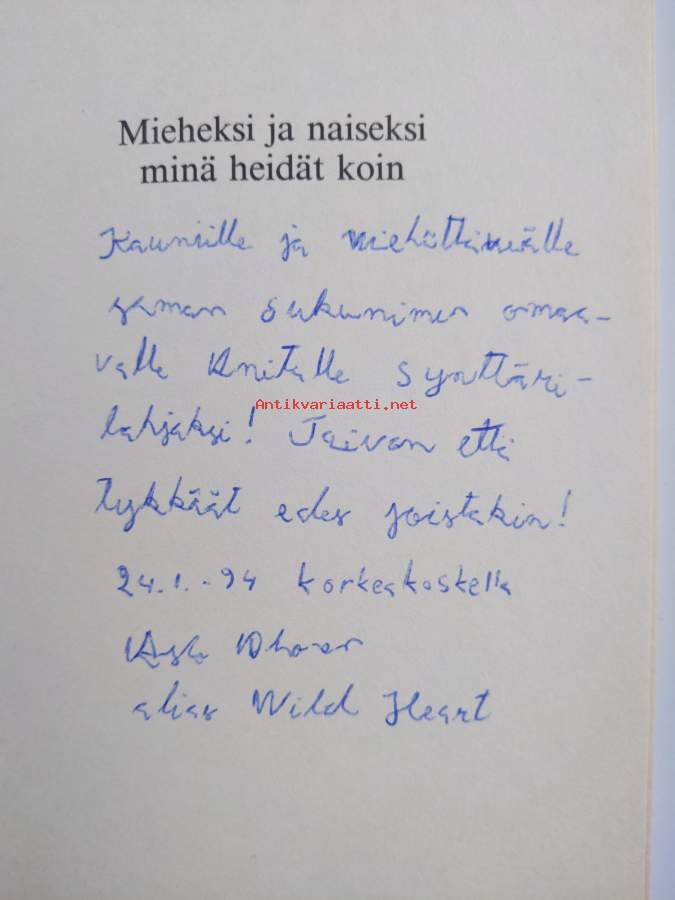 Mieheksi ja naiseksi
minä heidät koin
Kauniille ja viehättävälle
saman sukunimen omaa-
valle Anitalle synttäri-
Antikvariaatti.net
lahjaksi! Toivon että
tykkäät edes joistakin!
24.1.-94 Korkeakoskella
alias Wild Heart